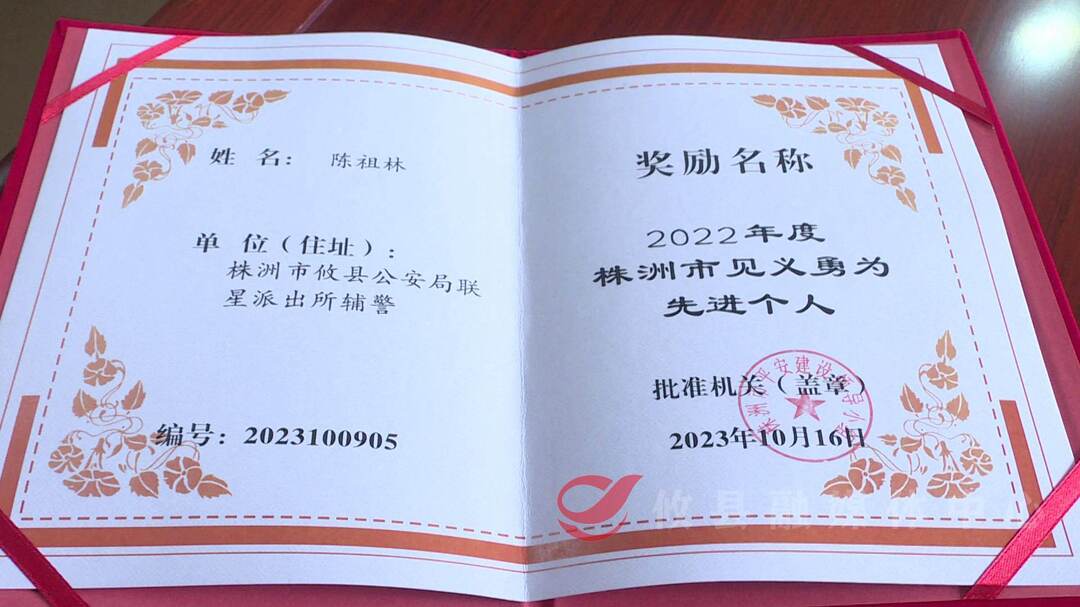 姓 名： 陈祖林
单 位（住址）：
株洲市攸县公安局联
星派出所辅警
编号：2023100905
奖励名称
2022年度
株洲市见义勇为
先进个人
批准机关（盖章）
2023年10月16日
株洲市平安建设领导小组
攸县融媒体中心